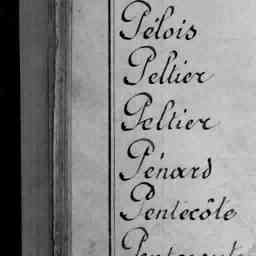 Pélois
Peltier
Peltier
Pénard
Pentecôte